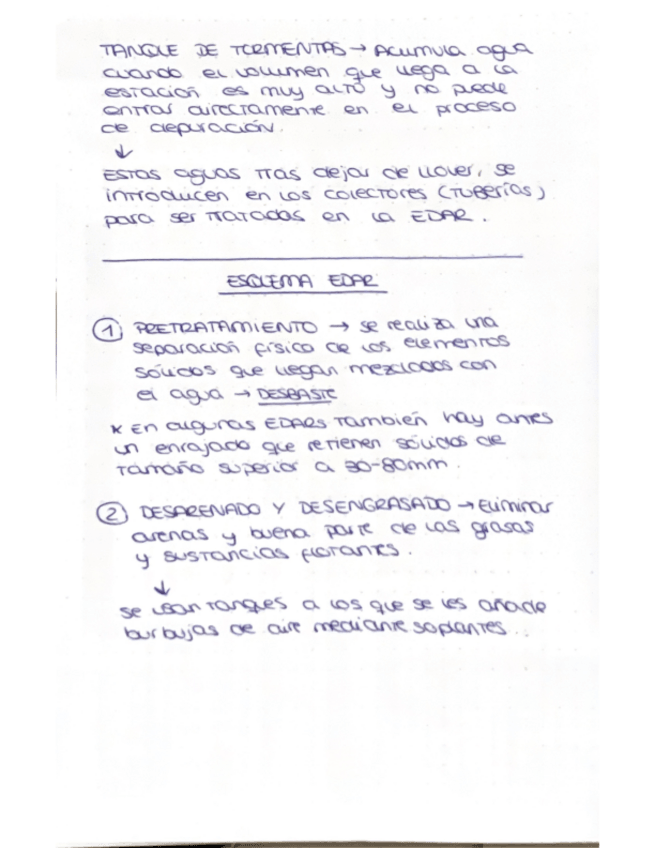 TANQUE DE TORMENTAS → Acumula agua
cuando el volumen que llega a la
estación es muy alto y no puede
entrar directamente en el proceso
de depuración.
↓
Estas aguas tras dejar de llover, se
introducen en los colectores (tuberías)
para ser tratadas en la EDAR.
ESQUEMA EDAR
① PRETRATAMIENTO → se realiza una
separación física de los elementos
sólidos que llegan mezclados con
el agua → DESBASTE
* En algunas EDARs también hay antes
un enrajado que retienen sólidos de
tamaño superior a 30-80mm.
② DESARENADO Y DESENGRASADO → Eliminar
arenas y buena parte de las grasas
y sustancias flotantes.
↓
se usan tanques a los que se les añade
burbujas de aire mediante soplantes.